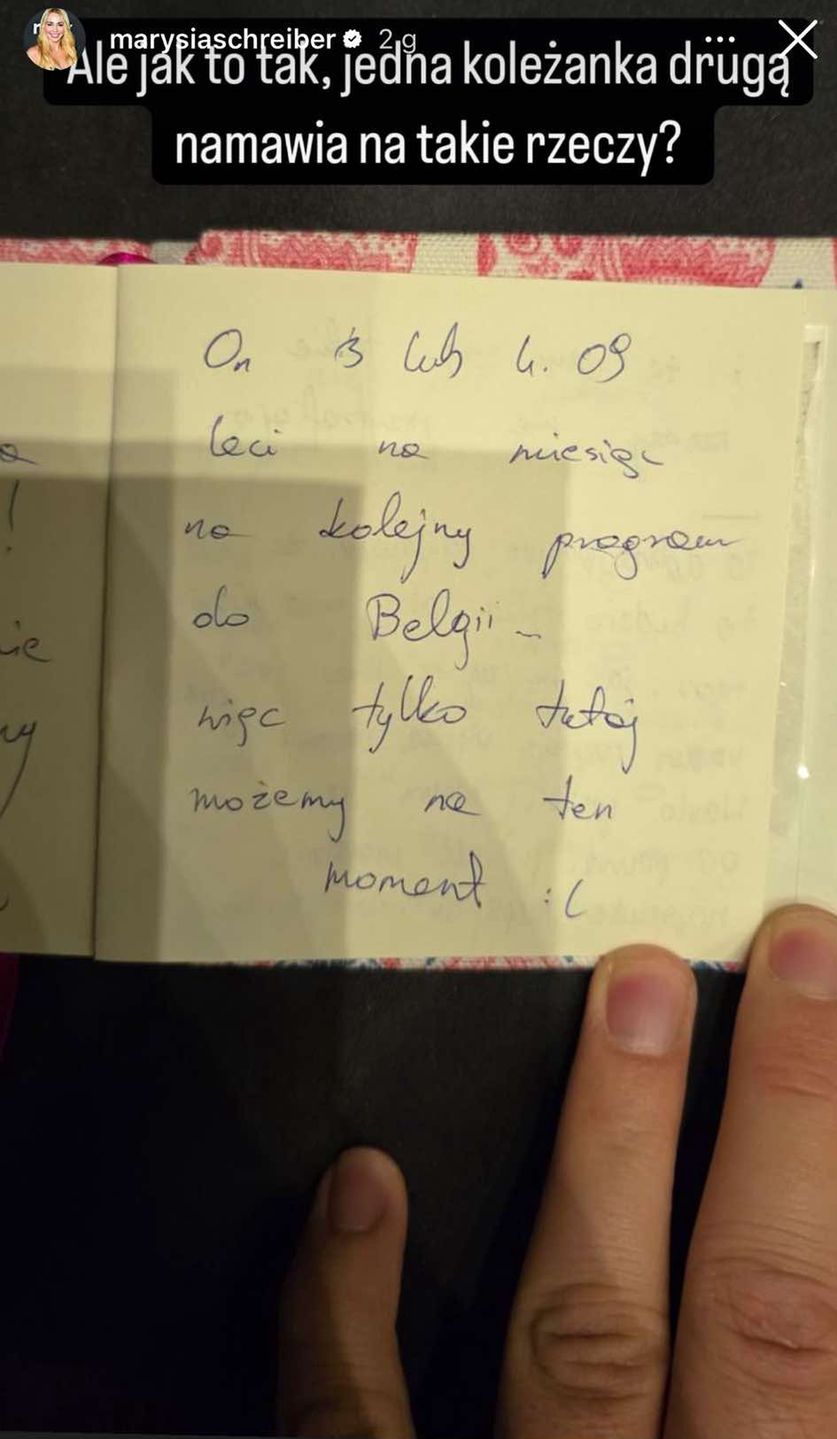 marysiaschreiber 2 g
Ale jak to tak, jedna koleżanka drugą
namawia na takie rzeczy?
On 3 lub 4. 09
leci na miesiąc
na kolejny program
do Belgii
więc tylko tutaj
możemy na ten
moment :(